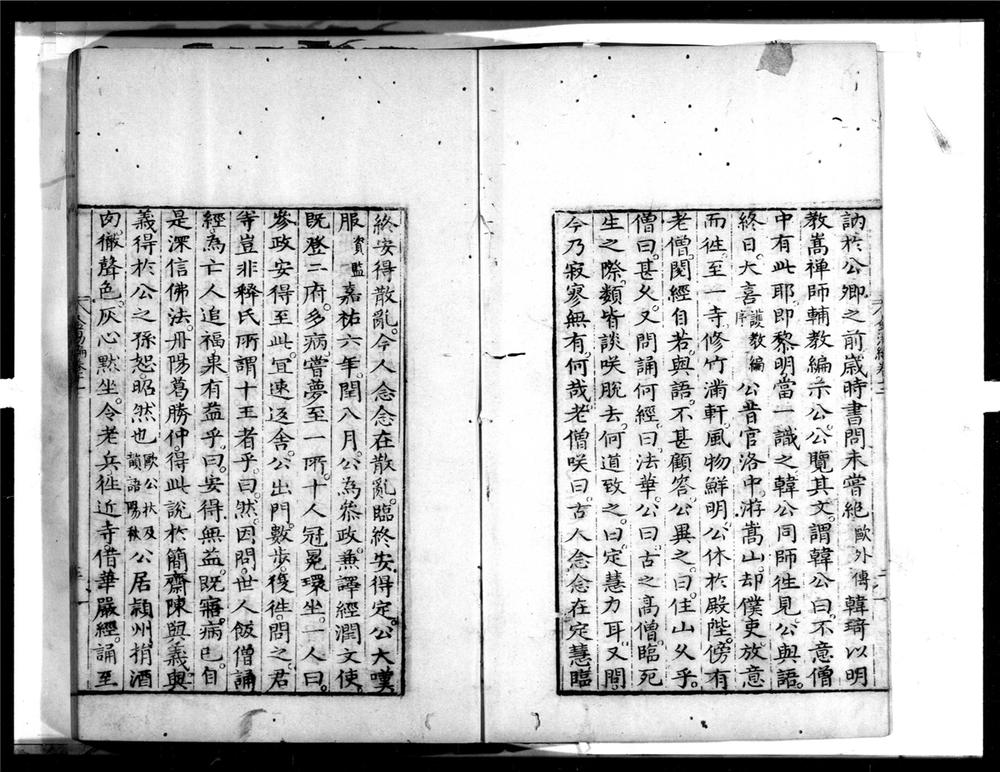 訥於公卿之前歲時書問未嘗絶歐外傳韓琦以明
教嵩禅師輔教編示公公覽其文謂韓公曰不意僧
中有此耶即黎明當一識之韓公同師徃見公與語
終日大喜護教編序公昔官洛中游嵩山却僕吏放意
而徃至一寺修竹滿軒風物鮮明公休於殿陛傍有
老僧閱經自若與語不甚顧答公異之曰住山久乎
僧曰甚久又問誦何經曰法華公曰古之高僧臨死
生之際類皆談咲脫去何道致之曰定慧力耳又問
今乃寂寥無有何哉老僧咲曰古人念念在定慧臨
終安得散亂今人念念在散亂臨終安得定公大嘆
服資鑑嘉祐六年閏八月公為叅政兼譯經潤文使
既登二府多病嘗夢至一所十人冠冕環坐一人曰
叅政安得至此宜速返舍公出門數步復徃問之君
等豈非釋氏所謂十王者乎曰然因問世人飯僧誦
經為亡人追福果有益乎曰安得無益既寤病已自
是深信佛法丹陽葛勝仲得此說於簡齋陳與義與
義得於公之孫恕昭然也歐公扶及韻語陽秋公居潁州捐酒
肉徹聲色灰心默坐令老兵徃近寺借華嚴經誦至